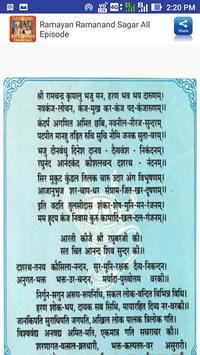 2:20 PM
Ramayan Ramanand Sagar All
Episode
Share
श्री रामचन्द्र कृपालु भजु मन, हरण भव भय दारुणम्।
नवकंज-लोचन, कंज-मुख कर-कंज पद-कंजारुणम्॥
कंदर्प अगणित अमित छबि, नवनील-नीरज-सुन्दरम्
पटपीत मानहु तड़ित रुचि शुचि नौमि जनक सुता-वरम्॥
भजु दीनबंधु दिनेश दानव - दैत्यवंश - निकंदनम्।
रघुनंद आनंदकंद कौशलचन्द दशरथ - नंदनम्॥
सिर मुकुट कुंडल तिलक चारु उदार अंग विभूषणम्
आजानुभुज शर-चाप-धर संग्राम-जित खर-दूषणम्॥
इति वदति तुलसीदास शंकर-शेष-मुनि-मन-रंजनम्।
मम हृदय कंज निवास कुरु कामादि-खल-दल-गंजनम्॥
आरती कीजै श्री रघुबरजी की।
सत चित आनन्द शिव सुन्दर की॥
दशरथ-तनय कौसिला-नन्दन, सुर-मुनि-रक्षक दैत्य-निकन्दन।
अनुगत-भक्त भक्त-उर-चन्दन, मर्यादा-पुरुषोत्तम वरकी॥
निर्गुन-सगुन अरूप-रूपनिधि, सकल लोक-वन्दित विभिन्न विधि।
हरण शोक-भय, दायक सब सिधि, मायारहित दिव्य नर-वरकी॥
जानकिपति सुराधिपति जगपति, अखिल लोक पालक त्रिलोक गति।
विश्ववंद्य अनवद्य अमित-मति, एकमात्र गति सचराचर की॥
शरणागत-वत्सल-व्रतधारी, भक्त-कल्पतरु-वर असुरारी।